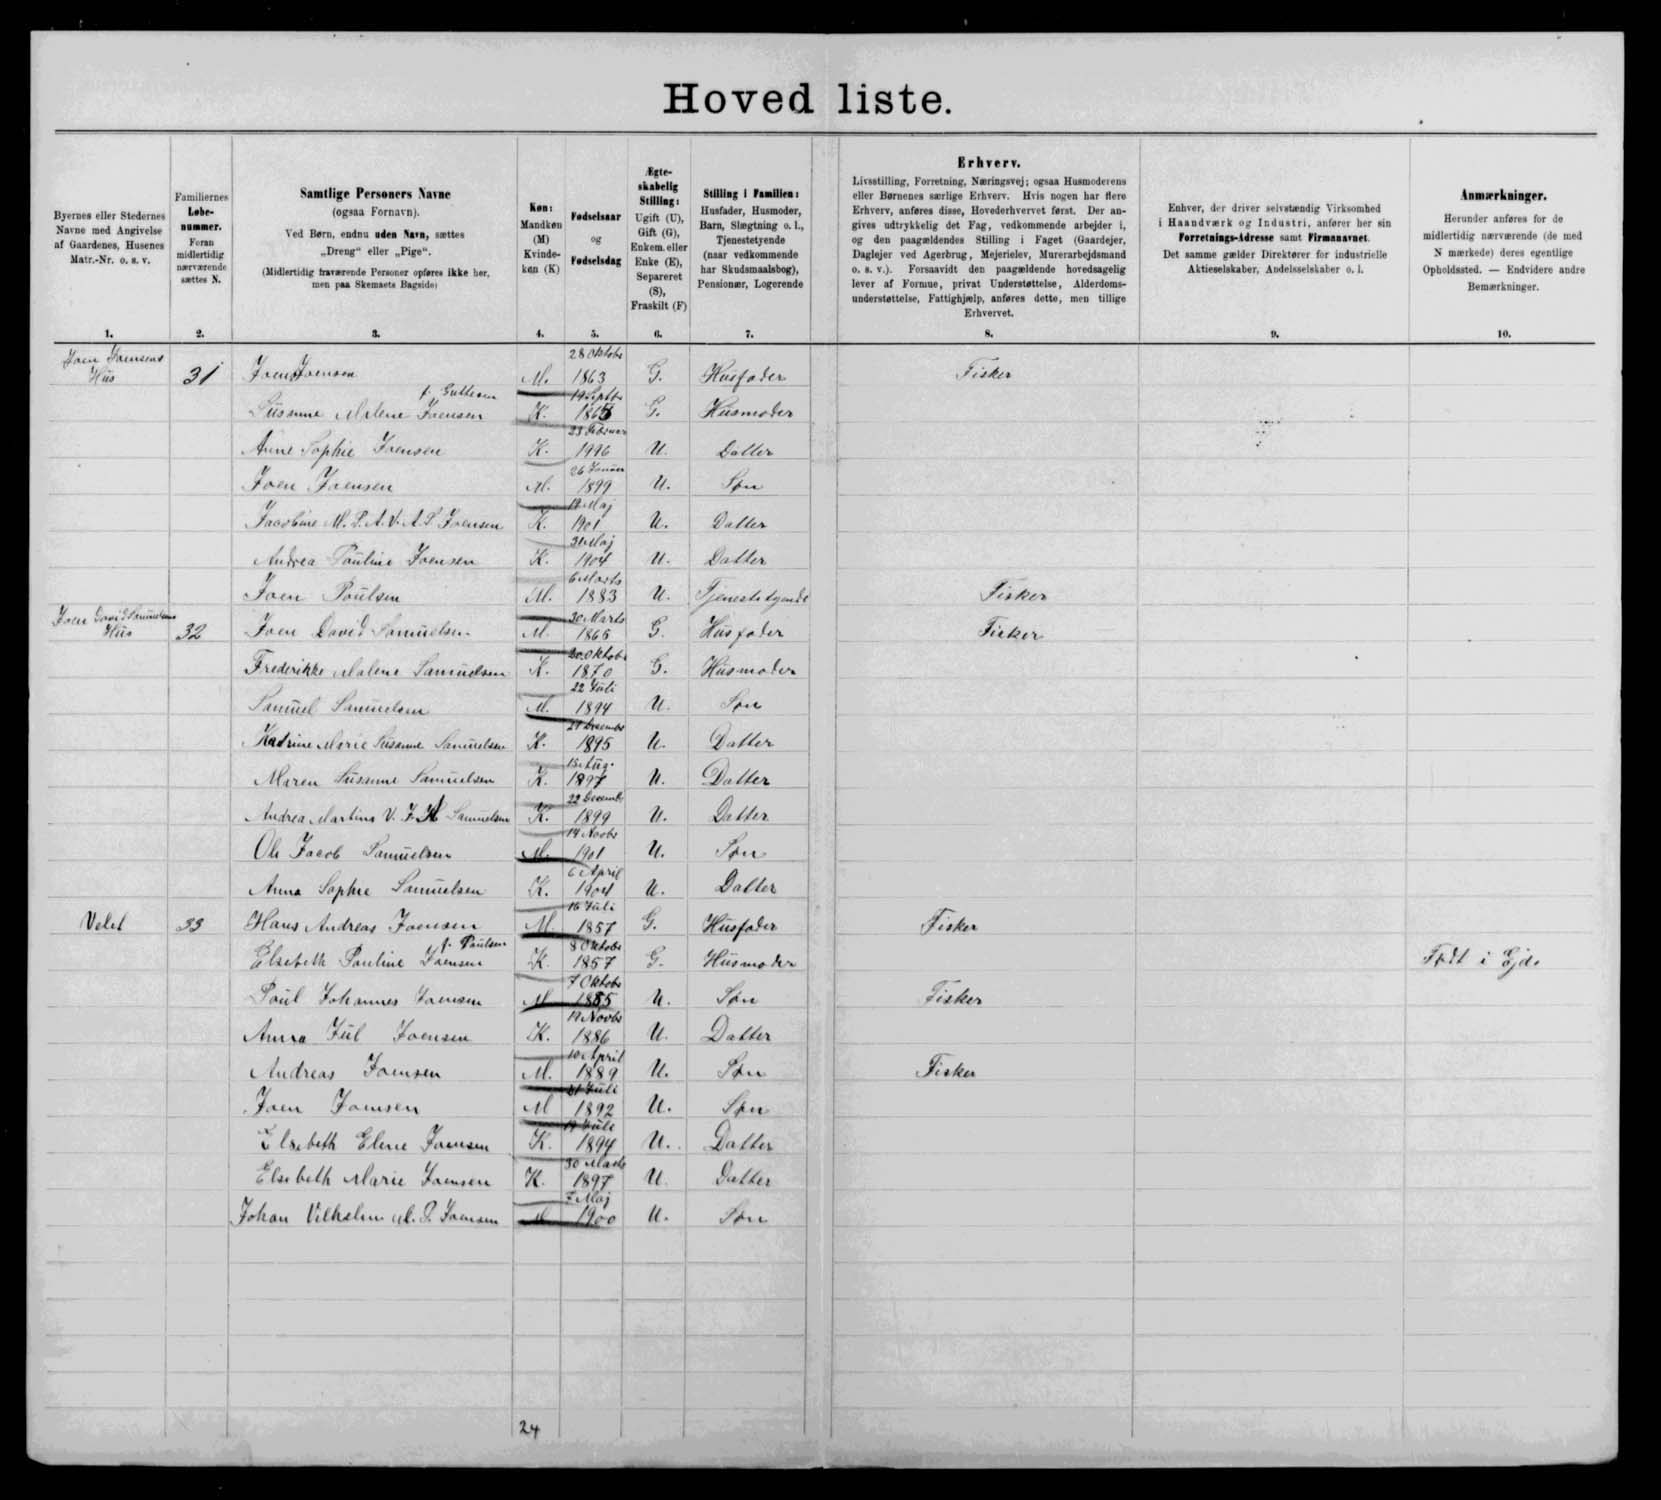 Hoved liste.
Byernes eller Stedernes
Navne med Angivelse
af Gaardenes, Husenes
Matr.-Nr. o. s. v.
1.
Familiernes
Løbe-
nummer.
Foran
midlertidig
nærværende
sættes N.
2.
Samtlige Personers Navne
(ogsaa Fornavn).
Ved Børn, endnu uden Navn, sættes
„Dreng“ eller „Pige“.
(Midlertidig fraværende Personer opføres ikke her,
men paa Skemaets Bagside)
3.
Køn:
Mandkøn
(M)
Kvinde-
køn (K)
4.
Fødselsaar
og
Fødselsdag
5.
Ægte-
skabelig
Stilling:
Ugift (U),
Gift (G),
Enkem. eller
Enke (E),
Separeret
(S),
Fraskilt (F)
6.
Stilling i Familien:
Husfader, Husmoder,
Barn, Slægtning o. l.,
Tjenestetyende
(naar vedkommende
har Skudsmaalsbog),
Pensionær, Logerende
7.
Erhverv.
Livsstilling, Forretning, Næringsvej; ogsaa Husmoderens
eller Børnenes særlige Erhverv. Hvis nogen har flere
Erhverv, anføres disse, Hovederhvervet først. Der an-
gives udtrykkelig det Fag, vedkommende arbejder i,
og den paagældendes Stilling i Faget (Gaardejer,
Daglejer ved Agerbrug, Mejerielev, Murerarbejdsmand
o. s. v.). Forsaavidt den paagældende hovedsagelig
lever af Formue, privat Understøttelse, Alderdoms-
understøttelse, Fattighjælp, anføres dette, men tillige
Erhvervet.
8.
Enhver, der driver selvstændig Virksomhed
i Haandværk og Industri, anfører her sin
Forretnings-Adresse samt Firmanavnet.
Det samme gælder Direktører for industrielle
Aktieselskaber, Andelsselskaber o. l.
9.
Anmærkninger.
Herunder anføres for de
midlertidig nærværende (de med
N mærkede) deres egentlige
Opholdssted. — Endvidere andre
Bemærkninger.
10.
Joen Joensens Hus 31 Joen Joensen M. 28 Oktobr 1863 G. Husfader Fisker
Susanne Malene Joensen f. Guttesen K. 19 Septbr G. Husmoder
Anne Sophie Joensen K. 23 Februar 1996 U. Datter
Joen Joensen M. 26 Januar 1899 U. Søn
Jacobine M. P. A. V. A. P. Joensen K. 19 Maj 1901 U. Datter
Andrea Pauline Joensen K. Maj 1904 U. Datter
Joen Poulsen M. 6 Marts 1883 U. Tjenestetyende Fisker
Joen David Samuelsens Hus 32 Joen David Samuelsen M. 30 Marts 1865 G. Husfader Fisker
Frederikke Malene Samuelsen K. 20 Oktobr 1870 G. Husmoder
Samuel Samuelsen M. 22 Juli 1894 U. Søn
Katrine Marie Susanne Samuelsen K. Decembr 1895 U. Datter
Maren Susanne Samuelsen K. Aug. 1897 U. Datter
Andrea Martina V. J. Samuelsen K. 22 Decembr 1899 U. Datter
Ole Jacob Samuelsen M. 14 Novbr 1901 U. Søn
Anna Sophie Samuelsen K. 6 April 1904 U. Datter
Velet 33 Hans Andreas Joensen M. 16 Juli 1857 G. Husfader Fisker
Elsebeth Pauline Joensen f. Poulsen K. 8 Oktobr 1857 G. Husmoder Født i Ejde
Poul Johannes Joensen M 7 Oktobr 1885 U. Søn Fisker
Anna Jul Joensen K. 19 Novbr 1886 U. Datter
Andreas Joensen M. 10 April 1889 U. Søn Fisker
Joen Joensen M Juli 1892 U. Søn
Elsebeth Elene Joensen K. 19 Juli 1894 U. Datter
Elsebeth Marie Joensen K. 30 Marts 1897 U. Datter
Johan Vilhelm M. P. Joensen M 7 Maj 1900 U. Søn
24